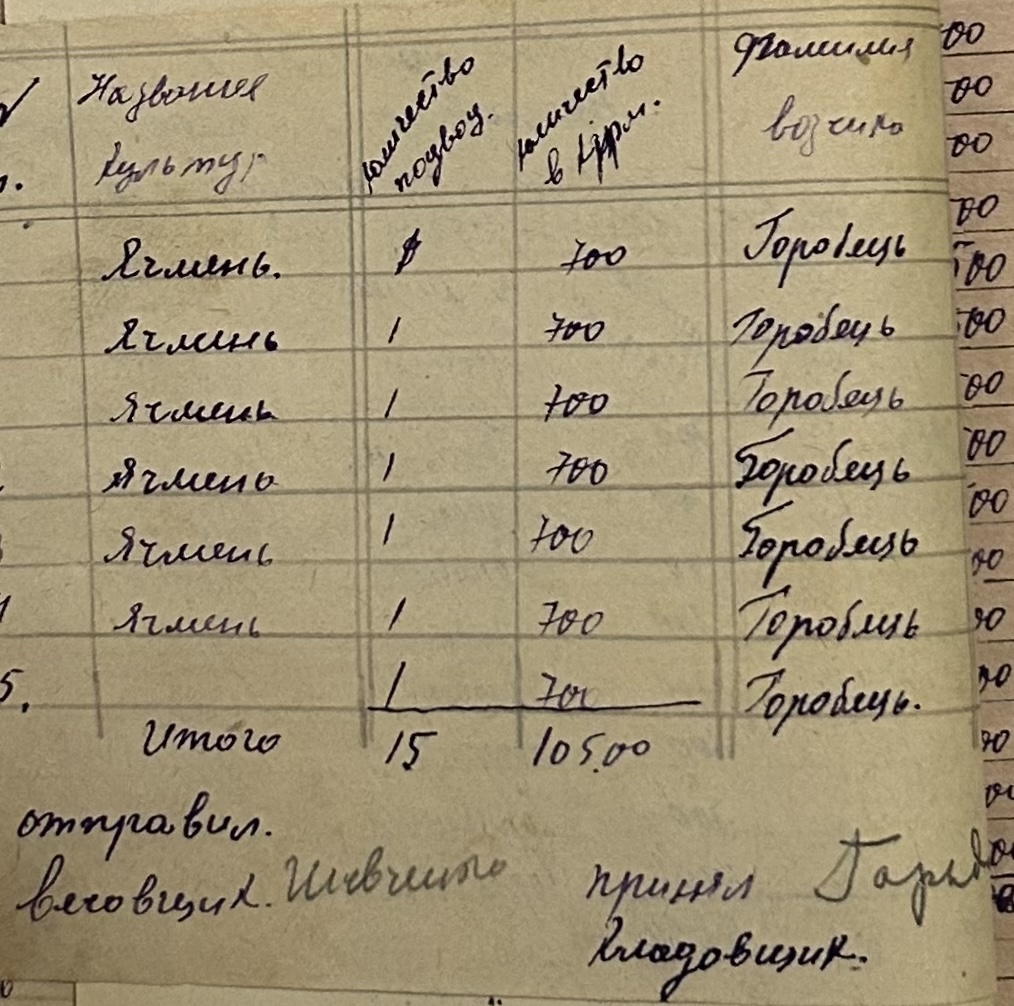 Название культур количество подвод. количество в кгрм. Фамилия возчика
Ячмень. 1 700 Горобець
Ячмень 1 700 Горобець
Ячмень 1 700 Горобець
Ячмень 1 700 Горобець
Ячмень 1 700 Горобець
Ячмень 1 700 Горобець
5. 1 700 Горобець.
Итого 15 10500
отправил.
весовщик. Шевченко принял
Кладовщик.